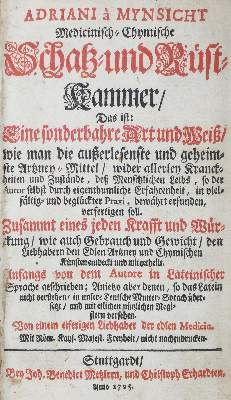 ADRIANI à MYNSICHT
Medicinisch-Chymische
Schatz-und Rüst-
Kammer/
Das ist:
Eine sonderbahre Art und Weiß/
wie man die außerlesenste und geheim-
ste Artzney-Mittel/ wider allerley Kranck-
heiten und Zustände/ deß Menschlichen Leibs, so der
Autor selbst durch eigenthumliche Erfahrenheit, in viel-
fältig-und beglückter Praxi, bewährt erfunden,
verfertigen soll.
Zusammt eines jeden Krafft und Wür-
ckung/ wie auch Gebrauch und Gewicht/ den
Liebhabern der Edlen Artzney und Chymischen
Kunst und mitgetheilt.
Anfangs von dem Autore in Lateinischer
Sprache geschrieben; Anietzo aber denen, so das Latein
nicht verstehen/ in unsere Teutsche Mutter-Sprach über-
setzt/ und mit etlichen nützlichen Regi-
stern versehen.
Von einem eiferigen Liebhaber der edlen Medicin.
Mit Röm. Kays. Majest. Freyheit/ nicht nachzudrucken.
Stuttgardt/
Bey Joh. Benedict Metzlern, und Christoph Erhardten,
Anno 1725.